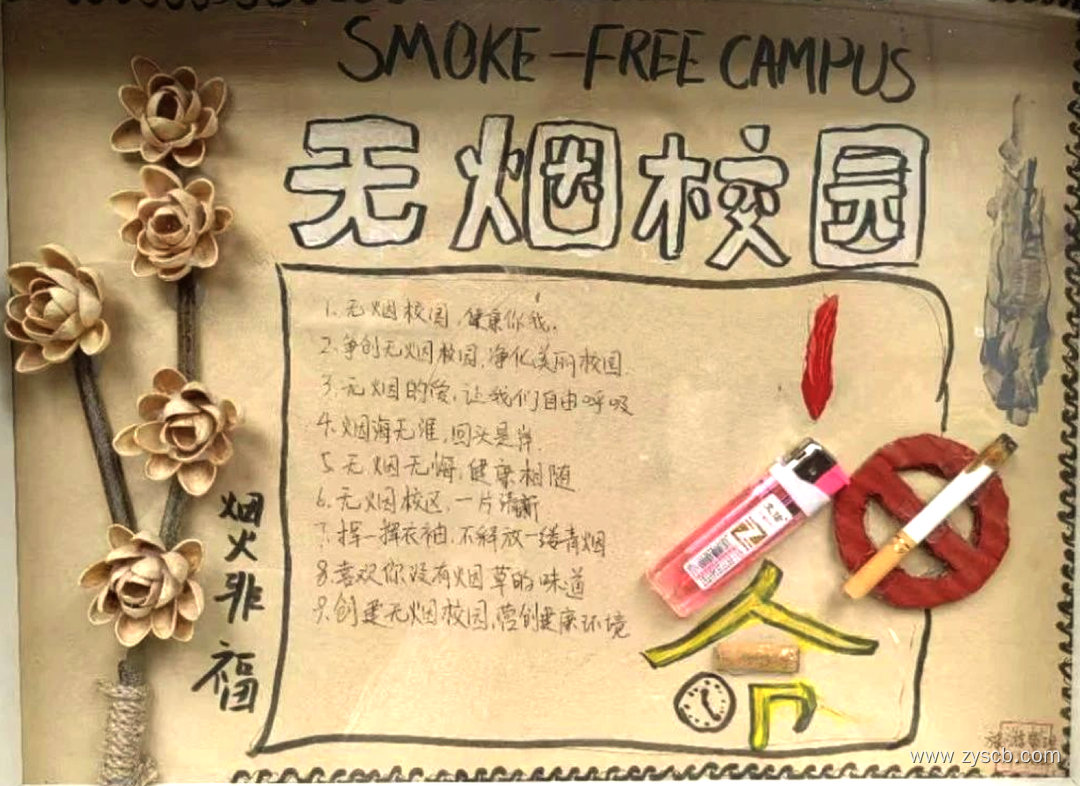 SMOKE-FREE CAMPUS
无烟校园
1. 无烟校园,健康你我.
2. 争创无烟校园,净化美丽校园.
3. 无烟的爱,让我们自由呼吸
4. 烟海无涯,回头是岸.
5. 无烟无悔,健康相随
6. 无烟校区,一片清新
7. 挥一挥衣袖,不释放一缕青烟
8. 喜欢你没有烟草的味道
9. 创建无烟校园,营创健康环境
烟火非福
命
www.zyscb.com